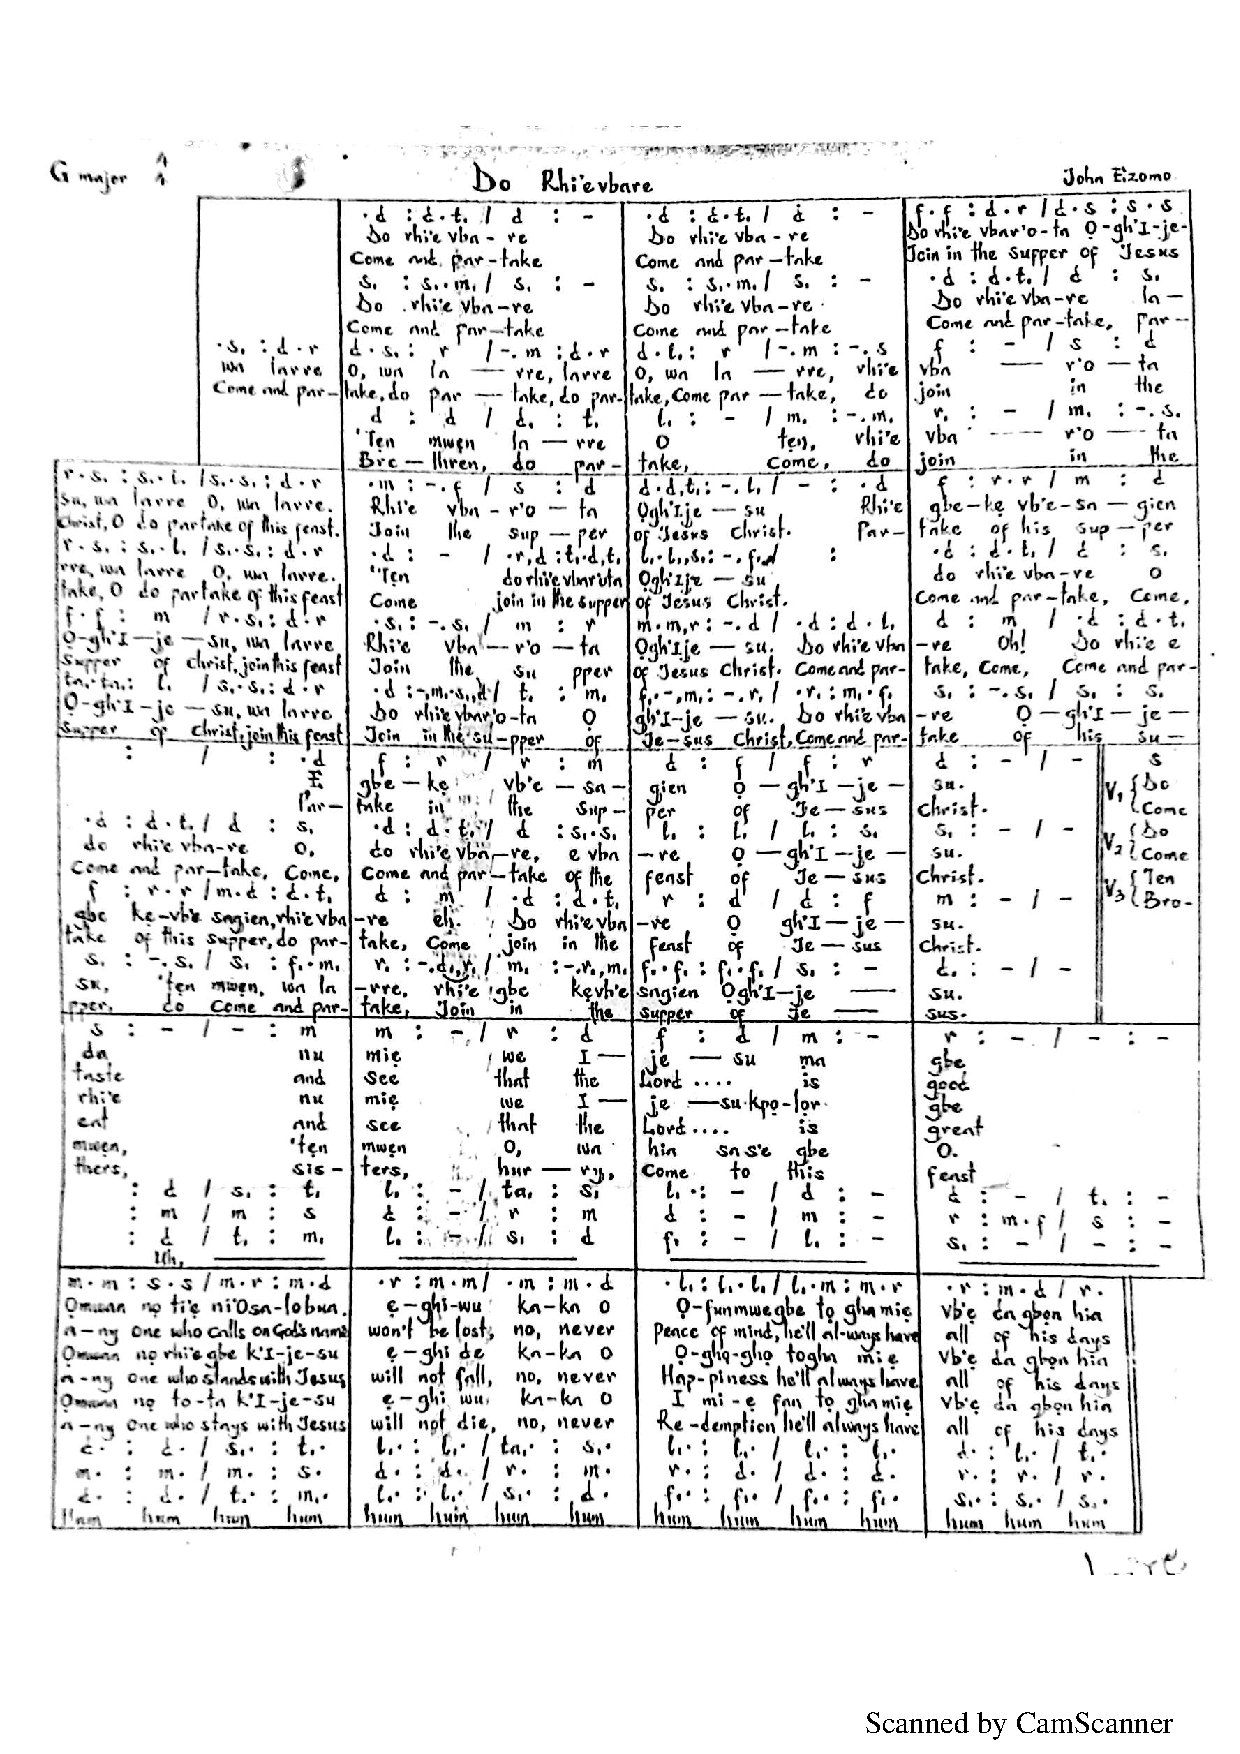 G major 4 4 Do Rhi'evbare John Eizomo
·d : d·t, / d : - ·d : d·t, / d : - f·f : d·r / d·s : s·s
Do rhi'e vba-re Do rhi'e vba-re Do rhi'e vbar'o-ta Ọ-gh'I-je-
Come and par-take Come and par-take Join in the supper of Jesus
s, : s,·m, / s, : - s, : s,·m, / s, : - ·d : d·t, / d : s,
Do rhi'e vba-re Do rhi'e vba-re Do rhi'e vba-re la-
Come and par-take Come and par-take Come and par-take, par-
·s, : d·r d·s, : r /-·m : d·r d·t, : r /-·m : -·s f : - / s : d
wa larre O, wa la-rre, larre O, wa la-rre, rhi'e vba r'o-ta
Come and par- take, do par-take, do par- take, Come par-take, do join in the
d : d / d, : t, l, : - / m, : -·m, r, : - / m, : -·s,
'Ten mwen la-rre O ten, rhi'e vba r'o-ta
Bre-thren, do par- take, Come, do join in the
r·s, : s,·l, / s,·s, : d·r ·m : -·f / s : d d·d,t, : -·l, / - : ·d f : r·r / m : d
su, wa larre O, wa larre. Rhi'e vba-r'o-ta Ọgh'Ije-su Rhi'e gbe-kẹ vb'e-sa-gien
Christ, O do partake of this feast. Join the sup-per of Jesus Christ. Par- take of his sup-per
r·s, : s,·l, / s,·s, : d·r ·d : - / ·r,d : t,·d,t, l,·l,,s, : -·f,
rre, wa larre O, wa larre. 'Ten do rhi'e vbar'ota Ọgh'Ije-su do rhi'e vba-re O
take, O do partake of this feast Come join in the supper of Jesus Christ. Come and par-take, Come,
f·f : m / r·s, : d·r ·s, : -·s, / m : r m·m,r : -·d / ·d : d·t, d : m / ·d : d·t,
Ọ-gh'I-je-su, wa larre Rhi'e vba-r'o-ta Ọgh'Ije-su. Do rhi'e vba -re Oh! Do rhi'e e
Supper of Christ, join this feast Join the su pper of Jesus Christ. Come and par- take, Come, Come and par-
ta,·ta, : l, / s,·s, : d·r s, : -·s, / s, : s,
Ọ-gh'I-je-su, wa larre Do rhi'e vbar'o-ta Ọ gh'I-je-su. Do rhi'e vba -re Ọ-gh'I-je-
Supper of Christ, join this feast Join in the su-pper of Je-sus Christ, Come and par- take of his su-
: / : ·d f : r / r : m d : f / f : r d : - / - s
E, gbe-kẹ vb'e-sa- gien Ọ-gh'I-je- su. V1 { Do
Par- take in the sup- per of Je-sus Christ. Come
·d : d·t, / d : s, ·d : d·t, / d : s,·s, l, : l, / l, : s, s, : - / - V2 { Do
do rhi'e vba-re O, do rhi'e vba-re, e vba -re Ọ-gh'I-je- su. Come
Come and par-take, Come, Come and par-take of the feast of Je-sus Christ. V3 { Ten
f : r·r / m·d : d·t, d : m / ·d : d·t, r : d / d : f m : - / - Bro-
gbe kẹ-vb'e sagien, rhi'e vba -re eh. Do rhi'e vba -re Ọ gh'I-je- su.
take of this supper, do par- take, Come join in the feast of Je-sus Christ.
s, : -·s, / s, : f,·m, r, : -·d,,r, / m, : -·r,,m, f,·f, : f,·f, / s, : - d, : - / -
su, 'ten mwen, wa la -rre, rhi'e gbe kẹvb'e sagien Ọgh'I-je su.
pper, do Come and par- take, Join in the supper of Je sus.
s : - / - : m m : - / r : d f : d / m : - r : - / - : -
da nu miẹ we I- je-su ma gbe
taste and see that the Lord .... is good
rhi'e nu miẹ we I- je-su kpọ-lọr gbe
eat and see that the Lord .... is great
mwen, 'ten mwen O, wa hia sa s'e gbe O.
thers, sis- ters, hur-ry, Come to this feast
: d / s, : t, l, : - / ta, : s, l, : - / d : - d : - / t, : -
: m / m : s d : - / r : m d : - / m : - r : m·f / s : -
: d / t, : m, l, : - / s, : d f, : - / l, : - s, : - / - : -
Uh,
m·m : s·s / m·r : m·d ·r : m·m / ·m : m·d ·l, : l,·l, / l,·m : m·r ·r : m·d / r·
Ọmwan nọ ti'e ni'Osa-lobua. ẹ-ghi-wu ka-ka O Ọ-funmwegbe tọ gha miẹ vb'ẹ da gbọn hia
a-ny one who calls on God's name won't be lost, no, never Peace of mind, he'll al-ways have all of his days
Ọmwan nọ rhi'e gbe k'I-je-su ẹ-ghi de ka-ka O Ọ-ghọ-ghọ togha miẹ vb'ẹ da gbọn hia
a-ny one who stands with Jesus will not fall, no, never Hap-piness he'll always have all of his days
Ọmwan nọ to-ta k'I-je-su ẹ-ghi wu ka-ka O I mi-ẹ fan tọ gha miẹ vb'ẹ da gbọn hia
a-ny one who stays with Jesus will not die, no, never Re-demption he'll always have all of his days
d· : d· / s,· : t,· l,· : l,· / ta,· : s,· l,· : l,· / l,· : l,· d· : l,· / t,·
m· : m· / m· : s· d· : d· / r· : m· r· : d· / d· : d· r· : r· / r·
d· : d· / t,· : m,· l,· : l,· / s,· : d· f,· : f,· / f,· : f,· s,· : s,· / s,·
Hum hum hum hum hum hum hum hum hum hum hum hum hum hum hum
Scanned by CamScanner